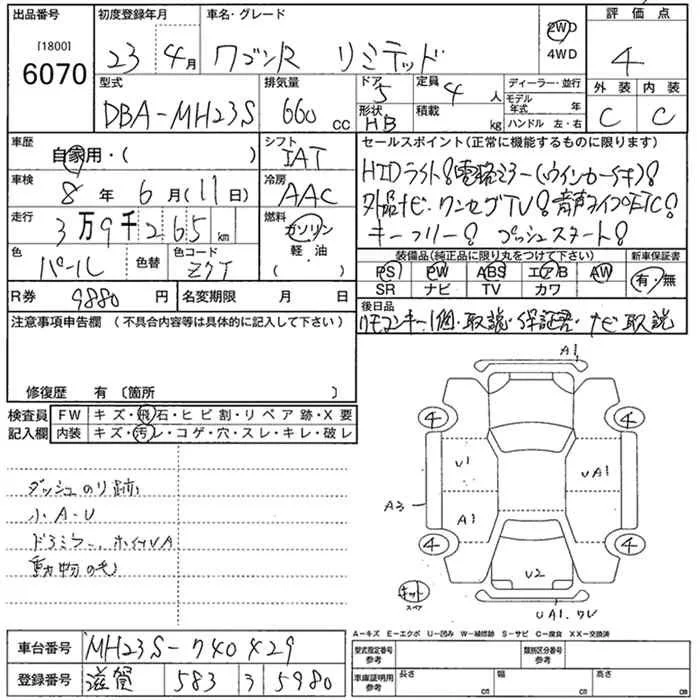 出品番号 初度登録年月 車名・グレード 評価点
[1800]
6070
23年4月 ワゴンR リミテッド 2WD 4WD 4
型式 排気量 ドア 5 定員 4人 ディーラー・並行 外装 内装
DBA-MH23S 660cc 形状 HB 積載 kg モデル年式 年 ハンドル 左・右 C C
車歴 自家用・( ) シフト IAT セールスポイント(正常に機能するものに限ります)
車検 8年6月(11日) 冷房 AAC HIDライト!電格ミラー(ウインカー付キ)!
走行 3万9千265km 燃料 ガソリン 軽・油 ( ) 外品ナビ・ワンセグTV!音声タイプETC!
キーフリー!プッシュスタート!
色 パール 色替 色コード Z7T 装備品(純正品に限り丸をつけて下さい) 新車保証書
PS PW ABS エアB AW 有・無
SR ナビ TV カワ
R券 9880円 名変期限 月 日 後日品
リモコンキー1個・取説・保証書・ナビ取説
注意事項申告欄 (不具合内容等は具体的に記入して下さい)
修復歴 有 〔箇所 〕
検査員 FW キズ・飛石・ヒビ割・リペア跡・X要
記入欄 内装 キズ・汚レ・コゲ・穴・スレ・キレ・破レ
ダッシュのり跡
小A-U
ドラミラー、ホイルA
動物の毛
A1
4 4
U1 UA1
A3 A1
4 4
U2
キット
スペア
UA1.W
A-キズ E-エクボ U-凹み W-補修跡 S-サビ C-腐食 XX-交換済
車台番号 MH23S-740429 型式指定番号 参考 類別区分番号 参考
登録番号 滋賀 583 う 5980 車庫証明用 参考 長さ cm 幅 cm 高さ cm